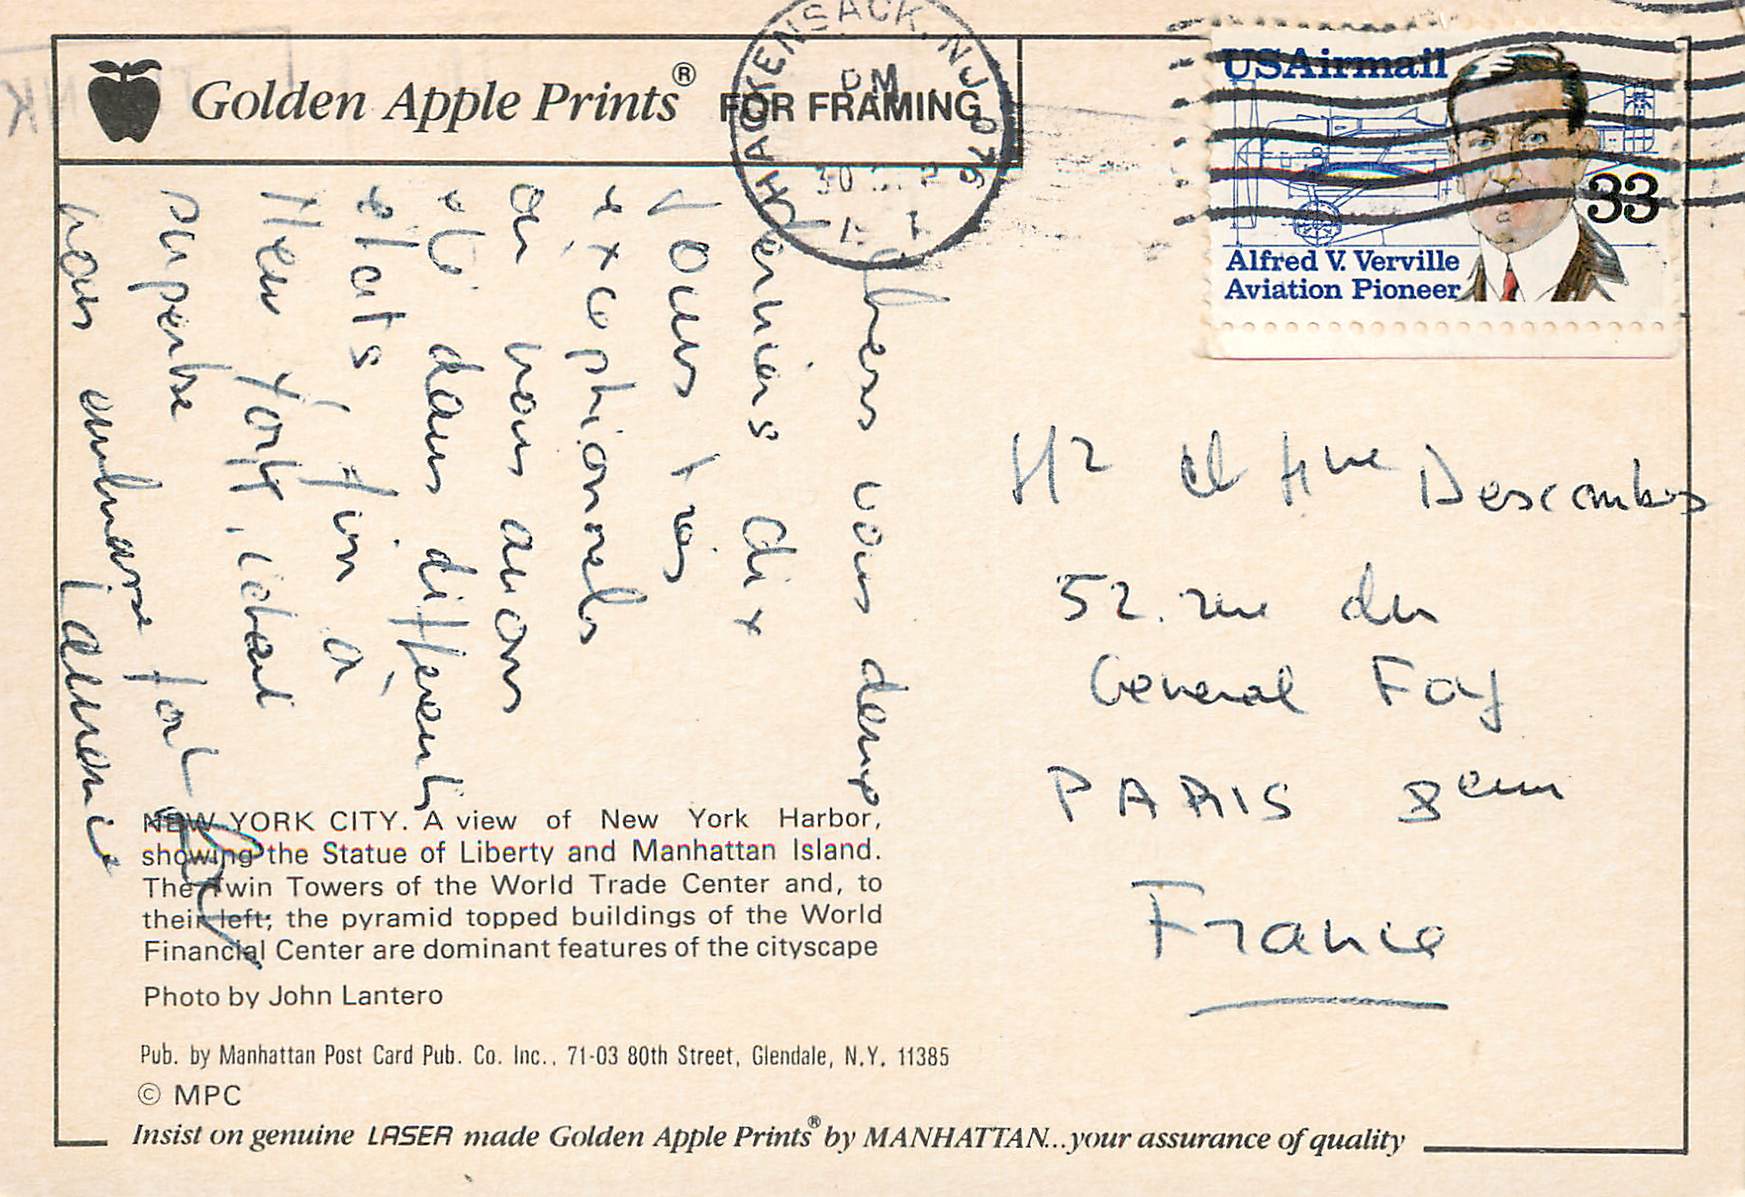 Golden Apple Prints® FOR FRAMING
HACKENSACK, NJ 076
PM
30
USAirmail
33
Alfred V. Verville
Aviation Pioneer
Apres vous deux
derniers dix
jours très
exceptionnels
où nous avons
été dans différents
états, fin à
New York, idéal
superbe
vous embrasse fort
Laurence
Mr et Mme Descombes
52. rue du
General Foy
PARIS 8eme
France
NEW YORK CITY. A view of New York Harbor,
showing the Statue of Liberty and Manhattan Island.
The Twin Towers of the World Trade Center and, to
their left; the pyramid topped buildings of the World
Financial Center are dominant features of the cityscape
Photo by John Lantero
Pub. by Manhattan Post Card Pub. Co. Inc., 71-03 80th Street, Glendale, N.Y. 11385
© MPC
Insist on genuine LASER made Golden Apple Prints® by MANHATTAN...your assurance of quality